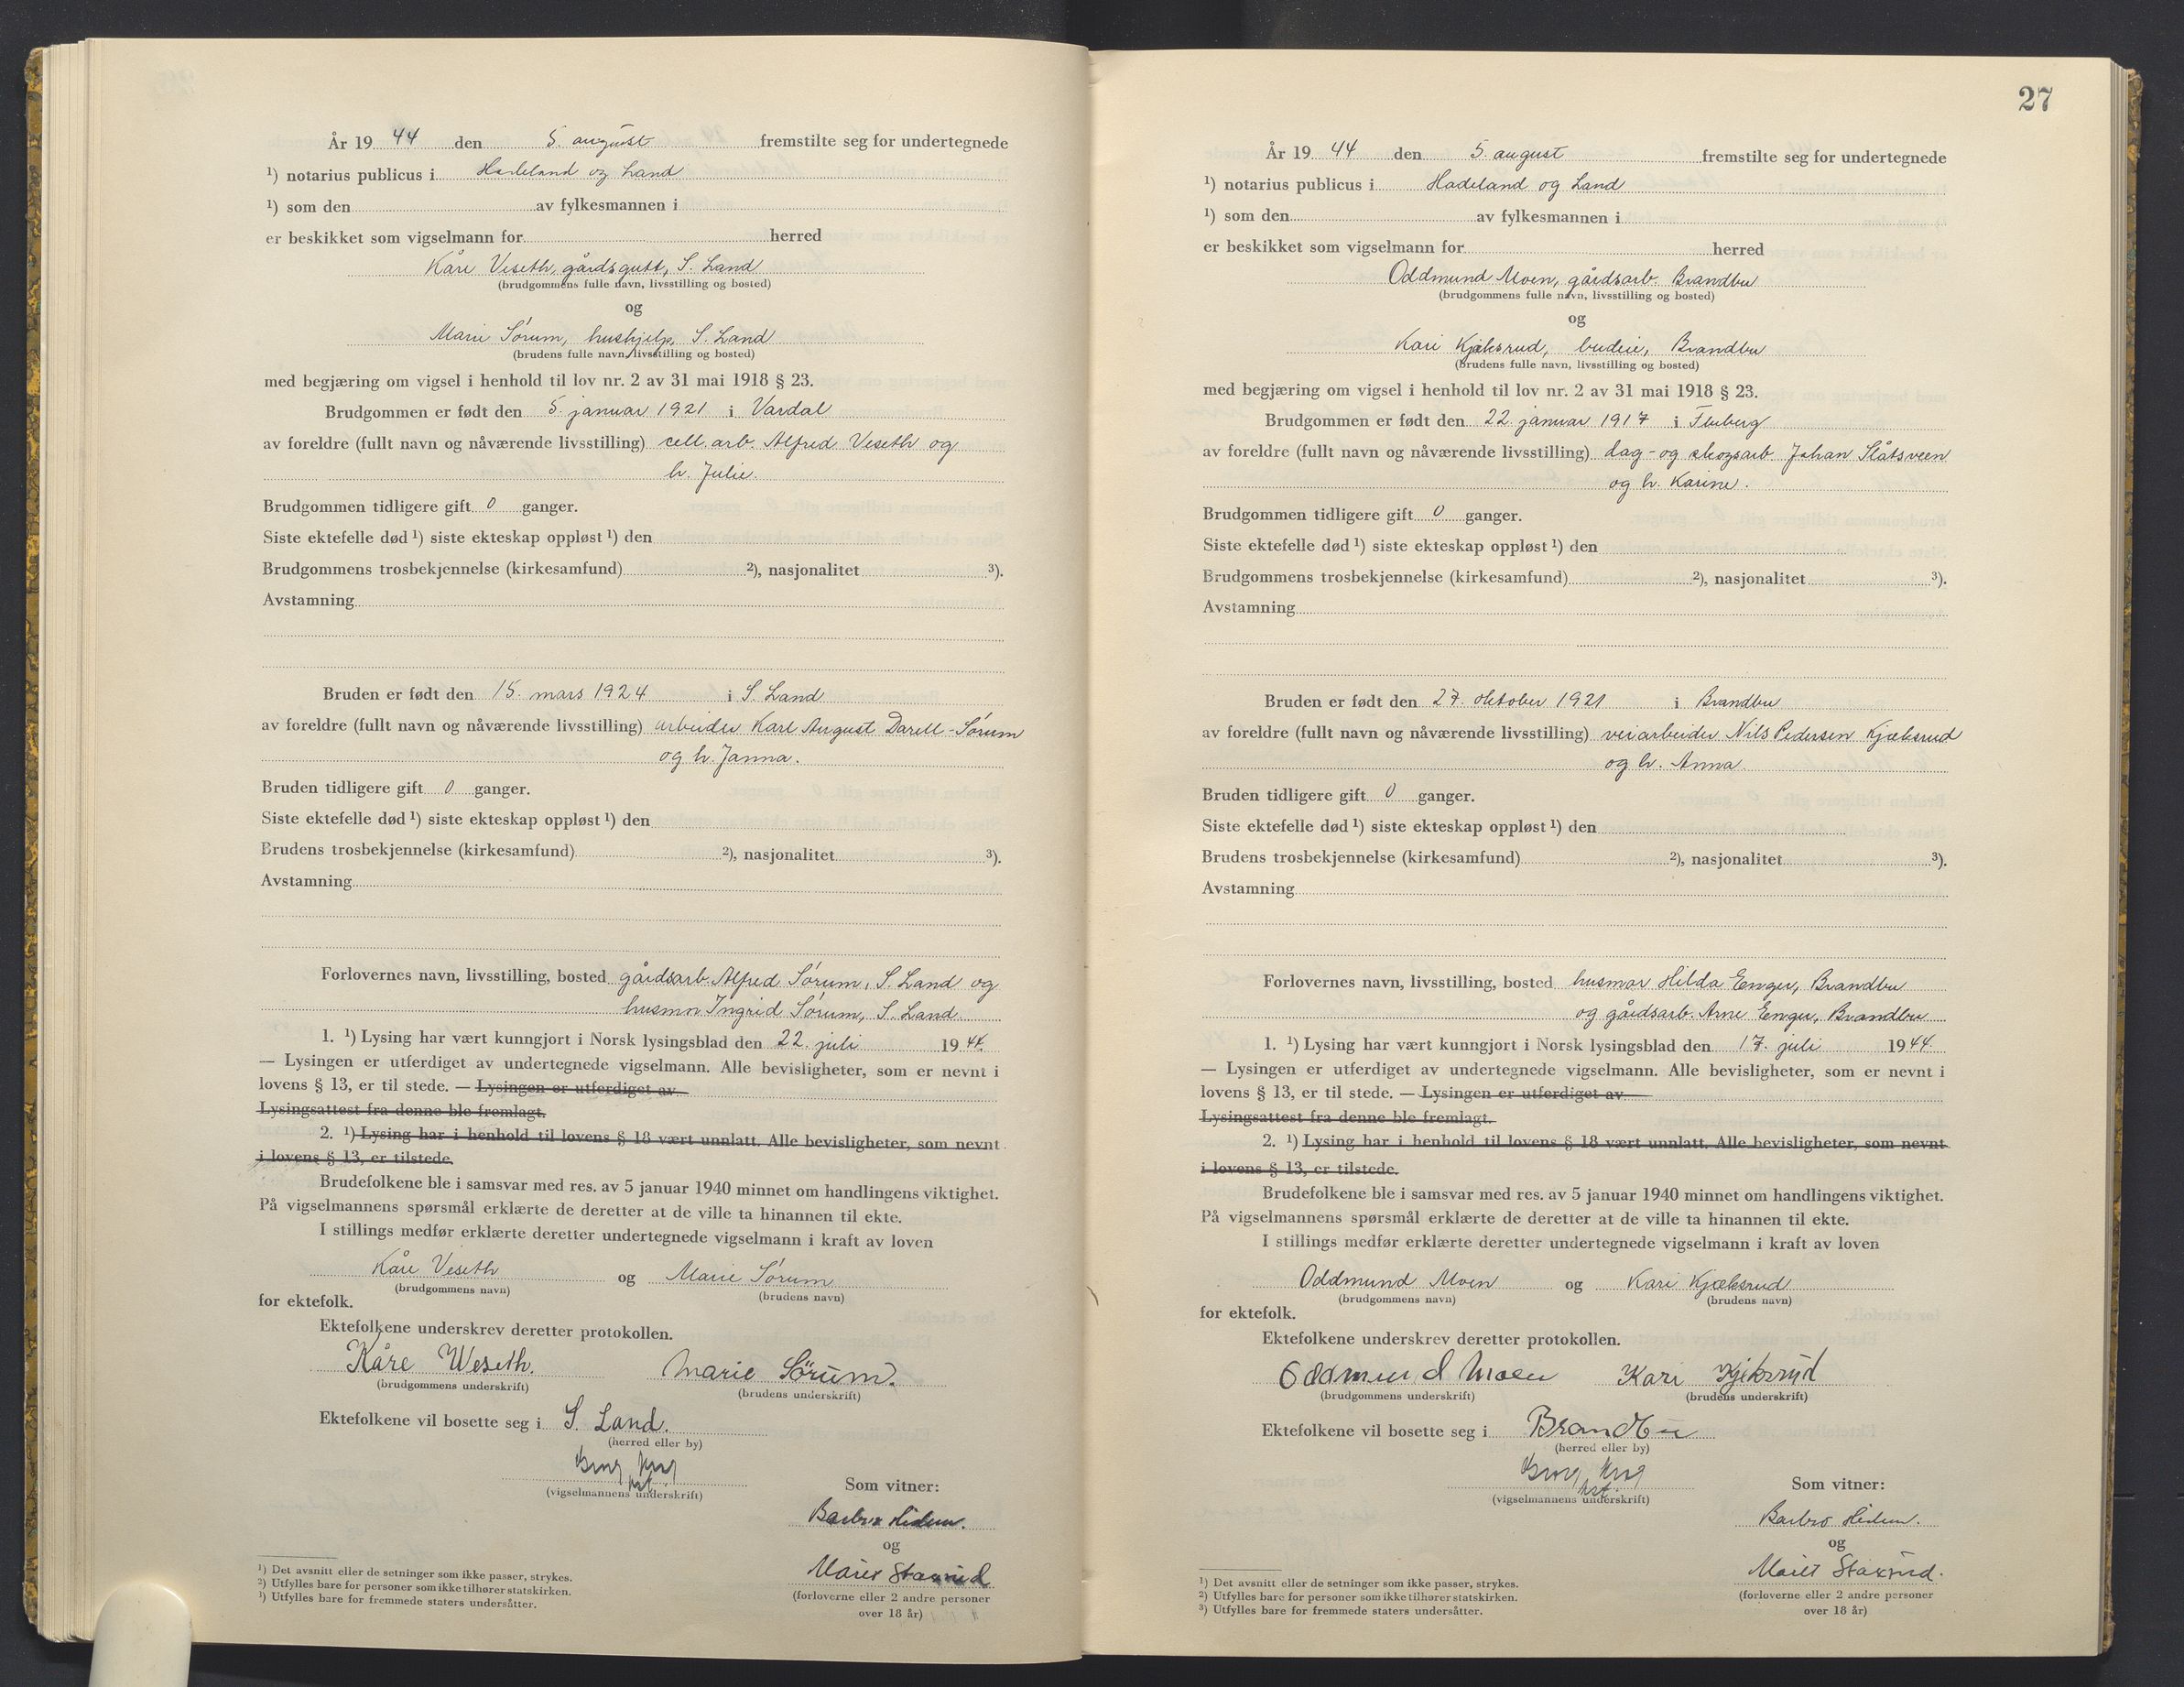 År 19 44 den 5. august fremstilte seg for undertegnede
¹) notarius publicus i Hadeland og Land
¹) som den av fylkesmannen i
er beskikket som vigselmann for herred
Kåre Veseth, gårdsgutt, S. Land
(brudgommens fulle navn, livsstilling og bosted)
og
Marie Sørum, hushjelp, S. Land
(brudens fulle navn, livsstilling og bosted)
med begjæring om vigsel i henhold til lov nr. 2 av 31 mai 1918 § 23.
Brudgommen er født den 5. januar 1921 i Vardal
av foreldre (fullt navn og nåværende livsstilling) cell. arb. Alfred Veseth og
h. Julie.
Brudgommen tidligere gift 0 ganger.
Siste ektefelle død ¹) siste ekteskap oppløst ¹) den
Brudgommens trosbekjennelse (kirkesamfund) ²), nasjonalitet ³).
Avstamning
Bruden er født den 15. mars 1924 i S. Land
av foreldre (fullt navn og nåværende livsstilling) arbeider Karl August Darell-Sørum
og h. Janna.
Bruden tidligere gift 0 ganger.
Siste ektefelle død ¹) siste ekteskap oppløst ¹) den
Brudens trosbekjennelse (kirkesamfund) ²), nasjonalitet ³).
Avstamning
Forlovernes navn, livsstilling, bosted gårdsarb. Alfred Sørum, S. Land og
husmor Ingrid Sørum, S. Land
1. ¹) Lysing har vært kunngjort i Norsk lysingsblad den 22. juli 19 44.
— Lysingen er utferdiget av undertegnede vigselmann. Alle bevisligheter, som er nevnt i
lovens § 13, er til stede. — Lysingen er utferdiget av
Lysingsattest fra denne ble fremlagt.
2. ¹) Lysing har i henhold til lovens § 18 vært unnlatt. Alle bevisligheter, som nevnt
i lovens § 13, er tilstede.
Brudefolkene ble i samsvar med res. av 5 januar 1940 minnet om handlingens viktighet.
På vigselmannens spørsmål erklærte de deretter at de ville ta hinannen til ekte.
I stillings medfør erklærte deretter undertegnede vigselmann i kraft av loven
Kåre Veseth og Marie Sørum
(brudgommens navn) (brudens navn)
for ektefolk.
Ektefolkene underskrev deretter protokollen.
Kåre Weseth. Marie Sörum.
(brudgommens underskrift) (brudens underskrift)
Ektefolkene vil bosette seg i S. Land.
(herred eller by)
(vigselmannens underskrift)
Som vitner:
Barbro
og
Marit Staxrud
(forloverne eller 2 andre personer
over 18 år)
¹) Det avsnitt eller de setninger som ikke passer, strykes.
²) Utfylles bare for personer som ikke tilhører statskirken.
¹) Utfylles bare for fremmede staters undersåtter.
27
År 19 44 den 5. august fremstilte seg for undertegnede
¹) notarius publicus i Hadeland og Land
¹) som den av fylkesmannen i
er beskikket som vigselmann for herred
Oddmund Moen, gårdsarb. Brandbu
(brudgommens fulle navn, livsstilling og bosted)
og
Kari Kjæksrud, budeie, Brandbu
(brudens fulle navn, livsstilling og bosted)
med begjæring om vigsel i henhold til lov nr. 2 av 31 mai 1918 § 23.
Brudgommen er født den 22. januar 1917 i Fluberg
av foreldre (fullt navn og nåværende livsstilling) dag- og skogsarb. Johan Slåtsveen
og h. Karine.
Brudgommen tidligere gift 0 ganger.
Siste ektefelle død ¹) siste ekteskap oppløst ¹) den
Brudgommens trosbekjennelse (kirkesamfund) ²), nasjonalitet ³).
Avstamning
Bruden er født den 27. oktober 1921 i Brandbu
av foreldre (fullt navn og nåværende livsstilling) veiarbeider Nils Pedersen Kjæksrud
og h. Anna.
Bruden tidligere gift 0 ganger.
Siste ektefelle død ¹) siste ekteskap oppløst ¹) den
Brudens trosbekjennelse (kirkesamfund) ²), nasjonalitet ³).
Avstamning
Forlovernes navn, livsstilling, bosted husmor Hilda Enger, Brandbu
og gårdsarb. Arne Enger, Brandbu
1. ¹) Lysing har vært kunngjort i Norsk lysingsblad den 17. juli 19 44.
— Lysingen er utferdiget av undertegnede vigselmann. Alle bevisligheter, som er nevnt i
lovens § 13, er til stede. — Lysingen er utferdiget av
Lysingsattest fra denne ble fremlagt.
2. ¹) Lysing har i henhold til lovens § 18 vært unnlatt. Alle bevisligheter, som nevnt
i lovens § 13, er tilstede.
Brudefolkene ble i samsvar med res. av 5 januar 1940 minnet om handlingens viktighet.
På vigselmannens spørsmål erklærte de deretter at de ville ta hinannen til ekte.
I stillings medfør erklærte deretter undertegnede vigselmann i kraft av loven
Oddmund Moen og Kari Kjæksrud
(brudgommens navn) (brudens navn)
for ektefolk.
Ektefolkene underskrev deretter protokollen.
Oddmund Moen Kari Kjeksrud
(brudgommens underskrift) (brudens underskrift)
Ektefolkene vil bosette seg i Brandbu
(herred eller by)
(vigselmannens underskrift)
Som vitner:
Barbro
og
Marit Staxrud.
(forloverne eller 2 andre personer
over 18 år)
¹) Det avsnitt eller de setninger som ikke passer, strykes.
²) Utfylles bare for personer som ikke tilhører statskirken.
³) Utfylles bare for fremmede staters undersåtter.